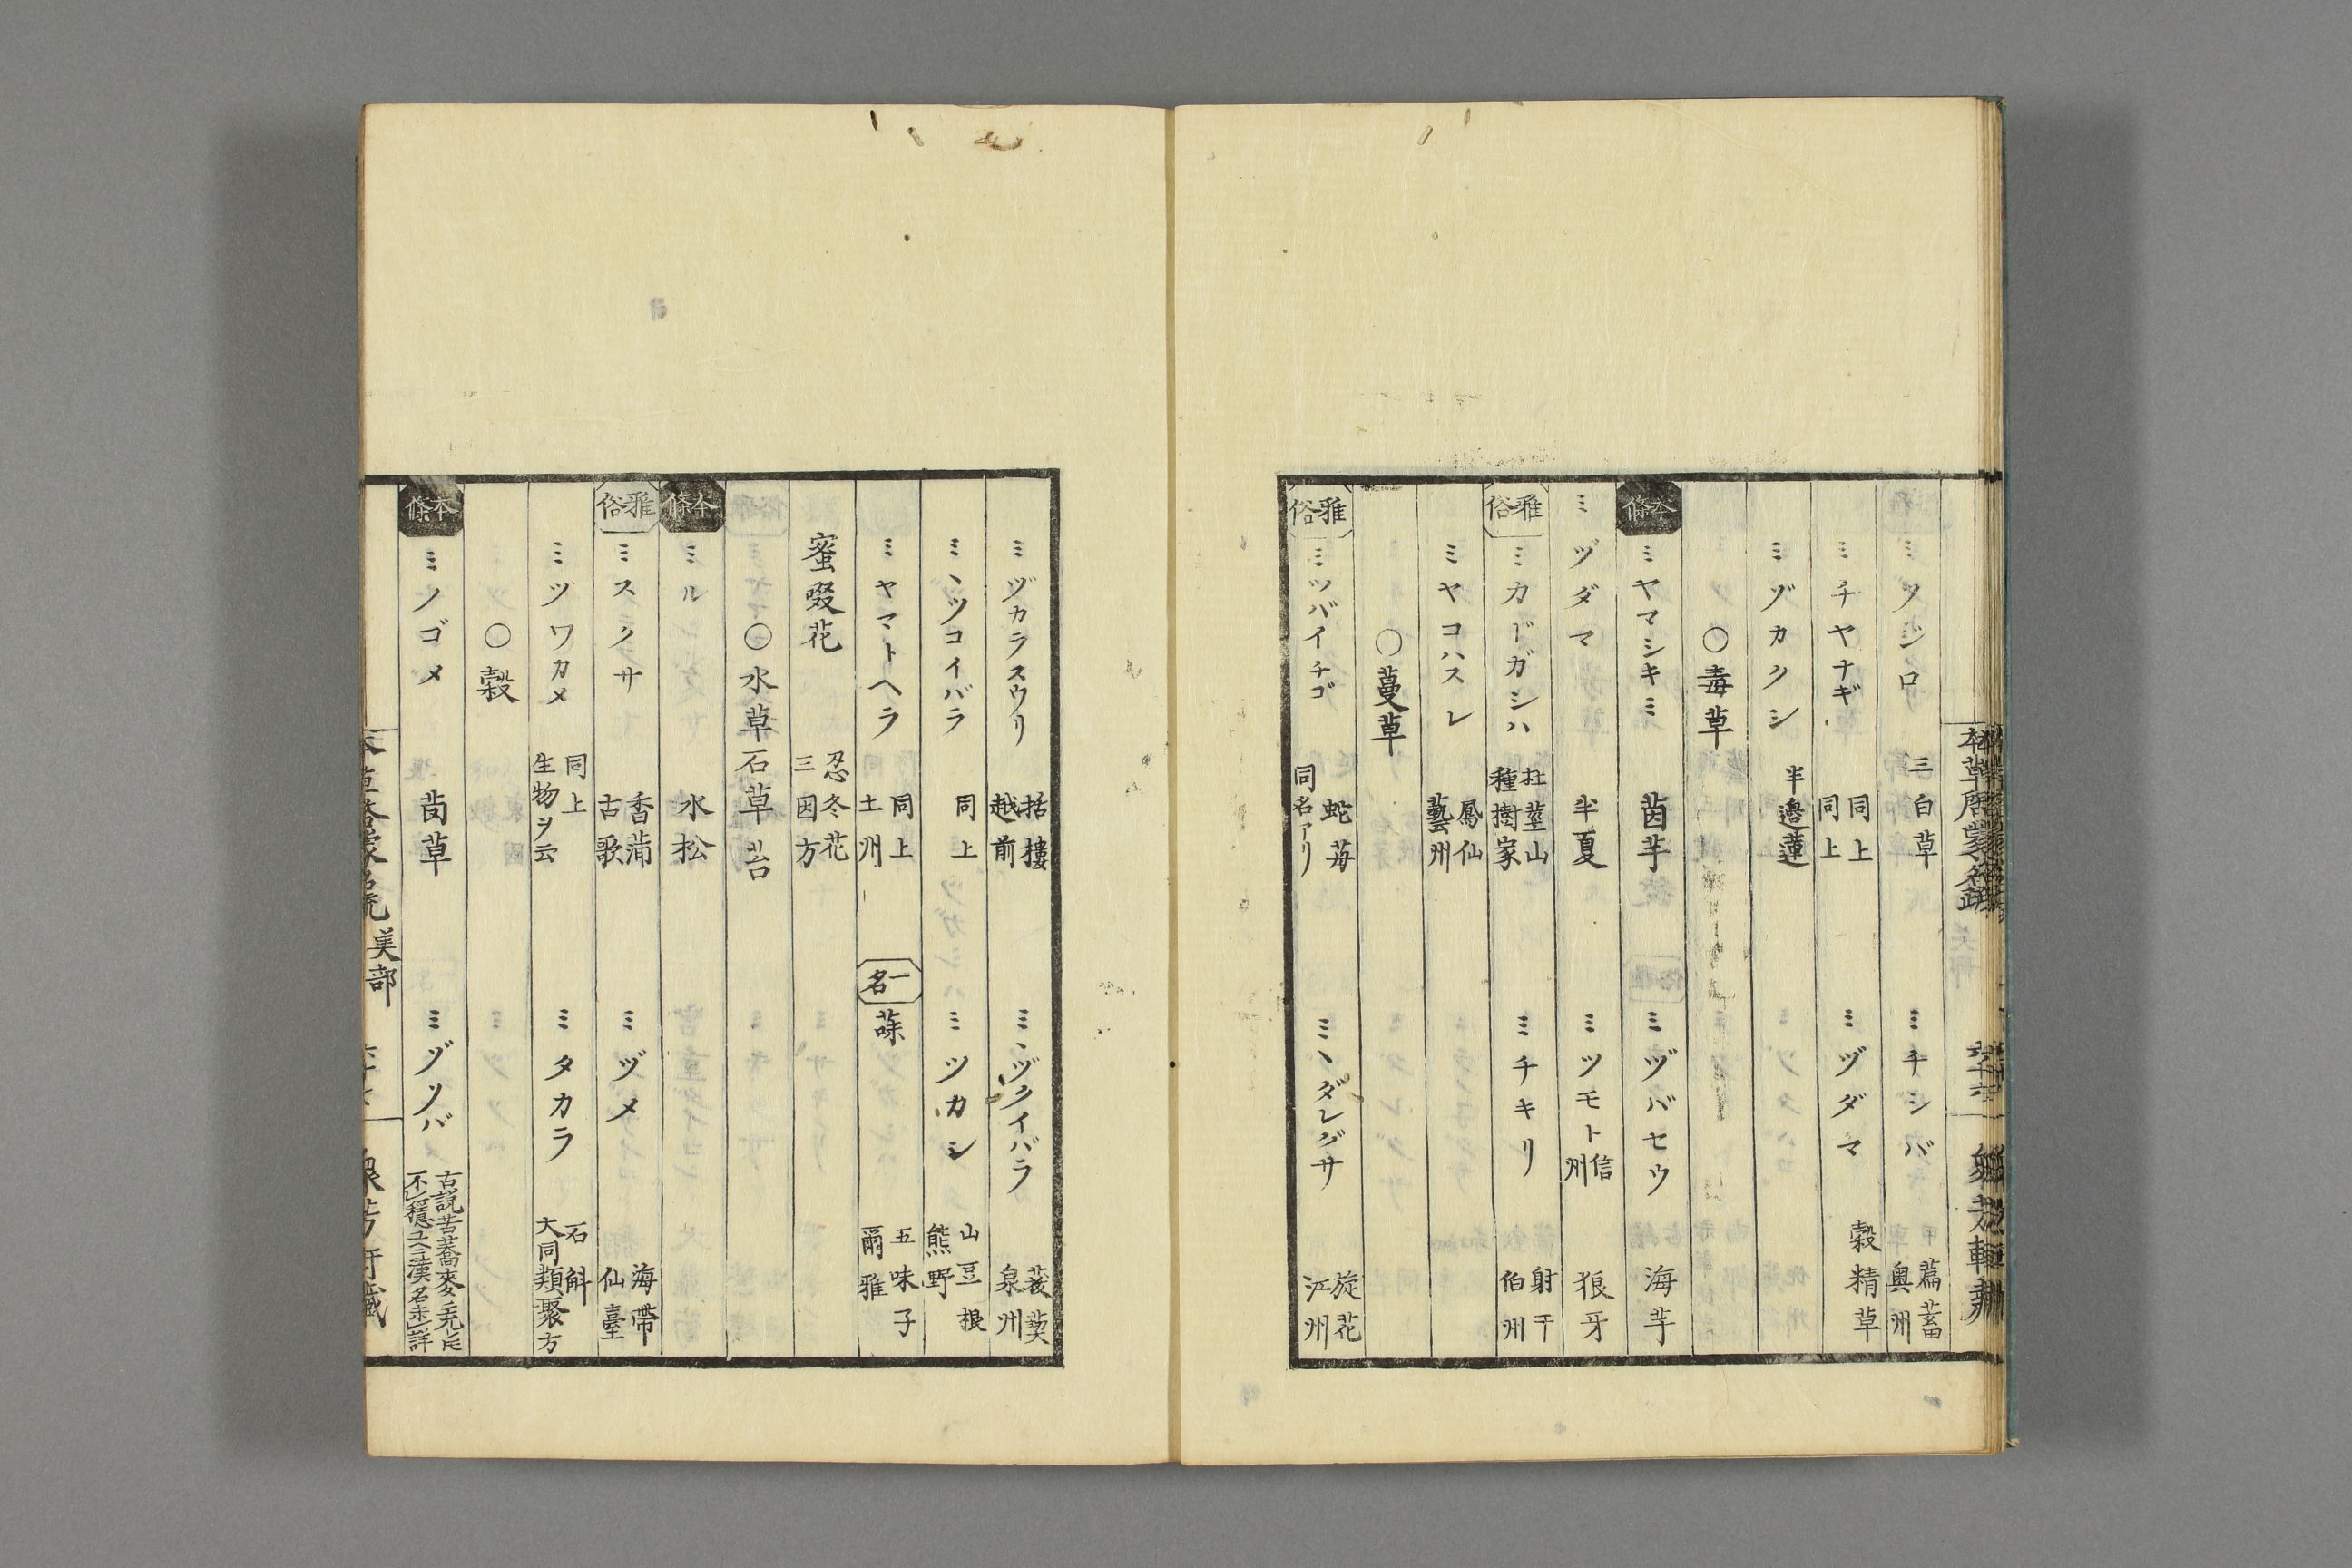 ミツジロ 三白草 ミチシバ 萹蓄 奥州
ミチヤナギ 同上 同上 ミヅダマ 穀精草
ミゾカクシ 半邉蓮
〇毒草
本條 ミヤマシキミ 茵芋 ミヅバセウ 海芋
ミヅダマ 半夏 ミツモト 信州 狼牙
雅俗 ミカドガシハ 杜莖山 種樹家 ミチキリ 射干 伯州
ミヤコハスレ 鳳仙 藝州
〇蔓草
雅俗 ミツバイチゴ 蛇苺 同名アリ ミヽダレグサ 旋花 江州
ミヅカラスウリ 括樓 越前 ミヽヅクイバラ 菝葜 泉州
ミヽツコイバラ 同上 ミツカシ 山豆根 熊野
ミヤマトヘラ 同上 土州 一名 菋 五味子 爾雅
蜜啜花 忍冬花 三因方
〇水草 石草 苔
本條 ミル 水松
雅俗 ミスクサ 香蒲 古歌 ミヅメ 海帶 仙臺
ミヅワカメ 同上 生物ヲ云 ミタカラ 石斛 大同類聚方
〇穀
本條 ミノゴメ 䒵草 ミヅソバ
美部